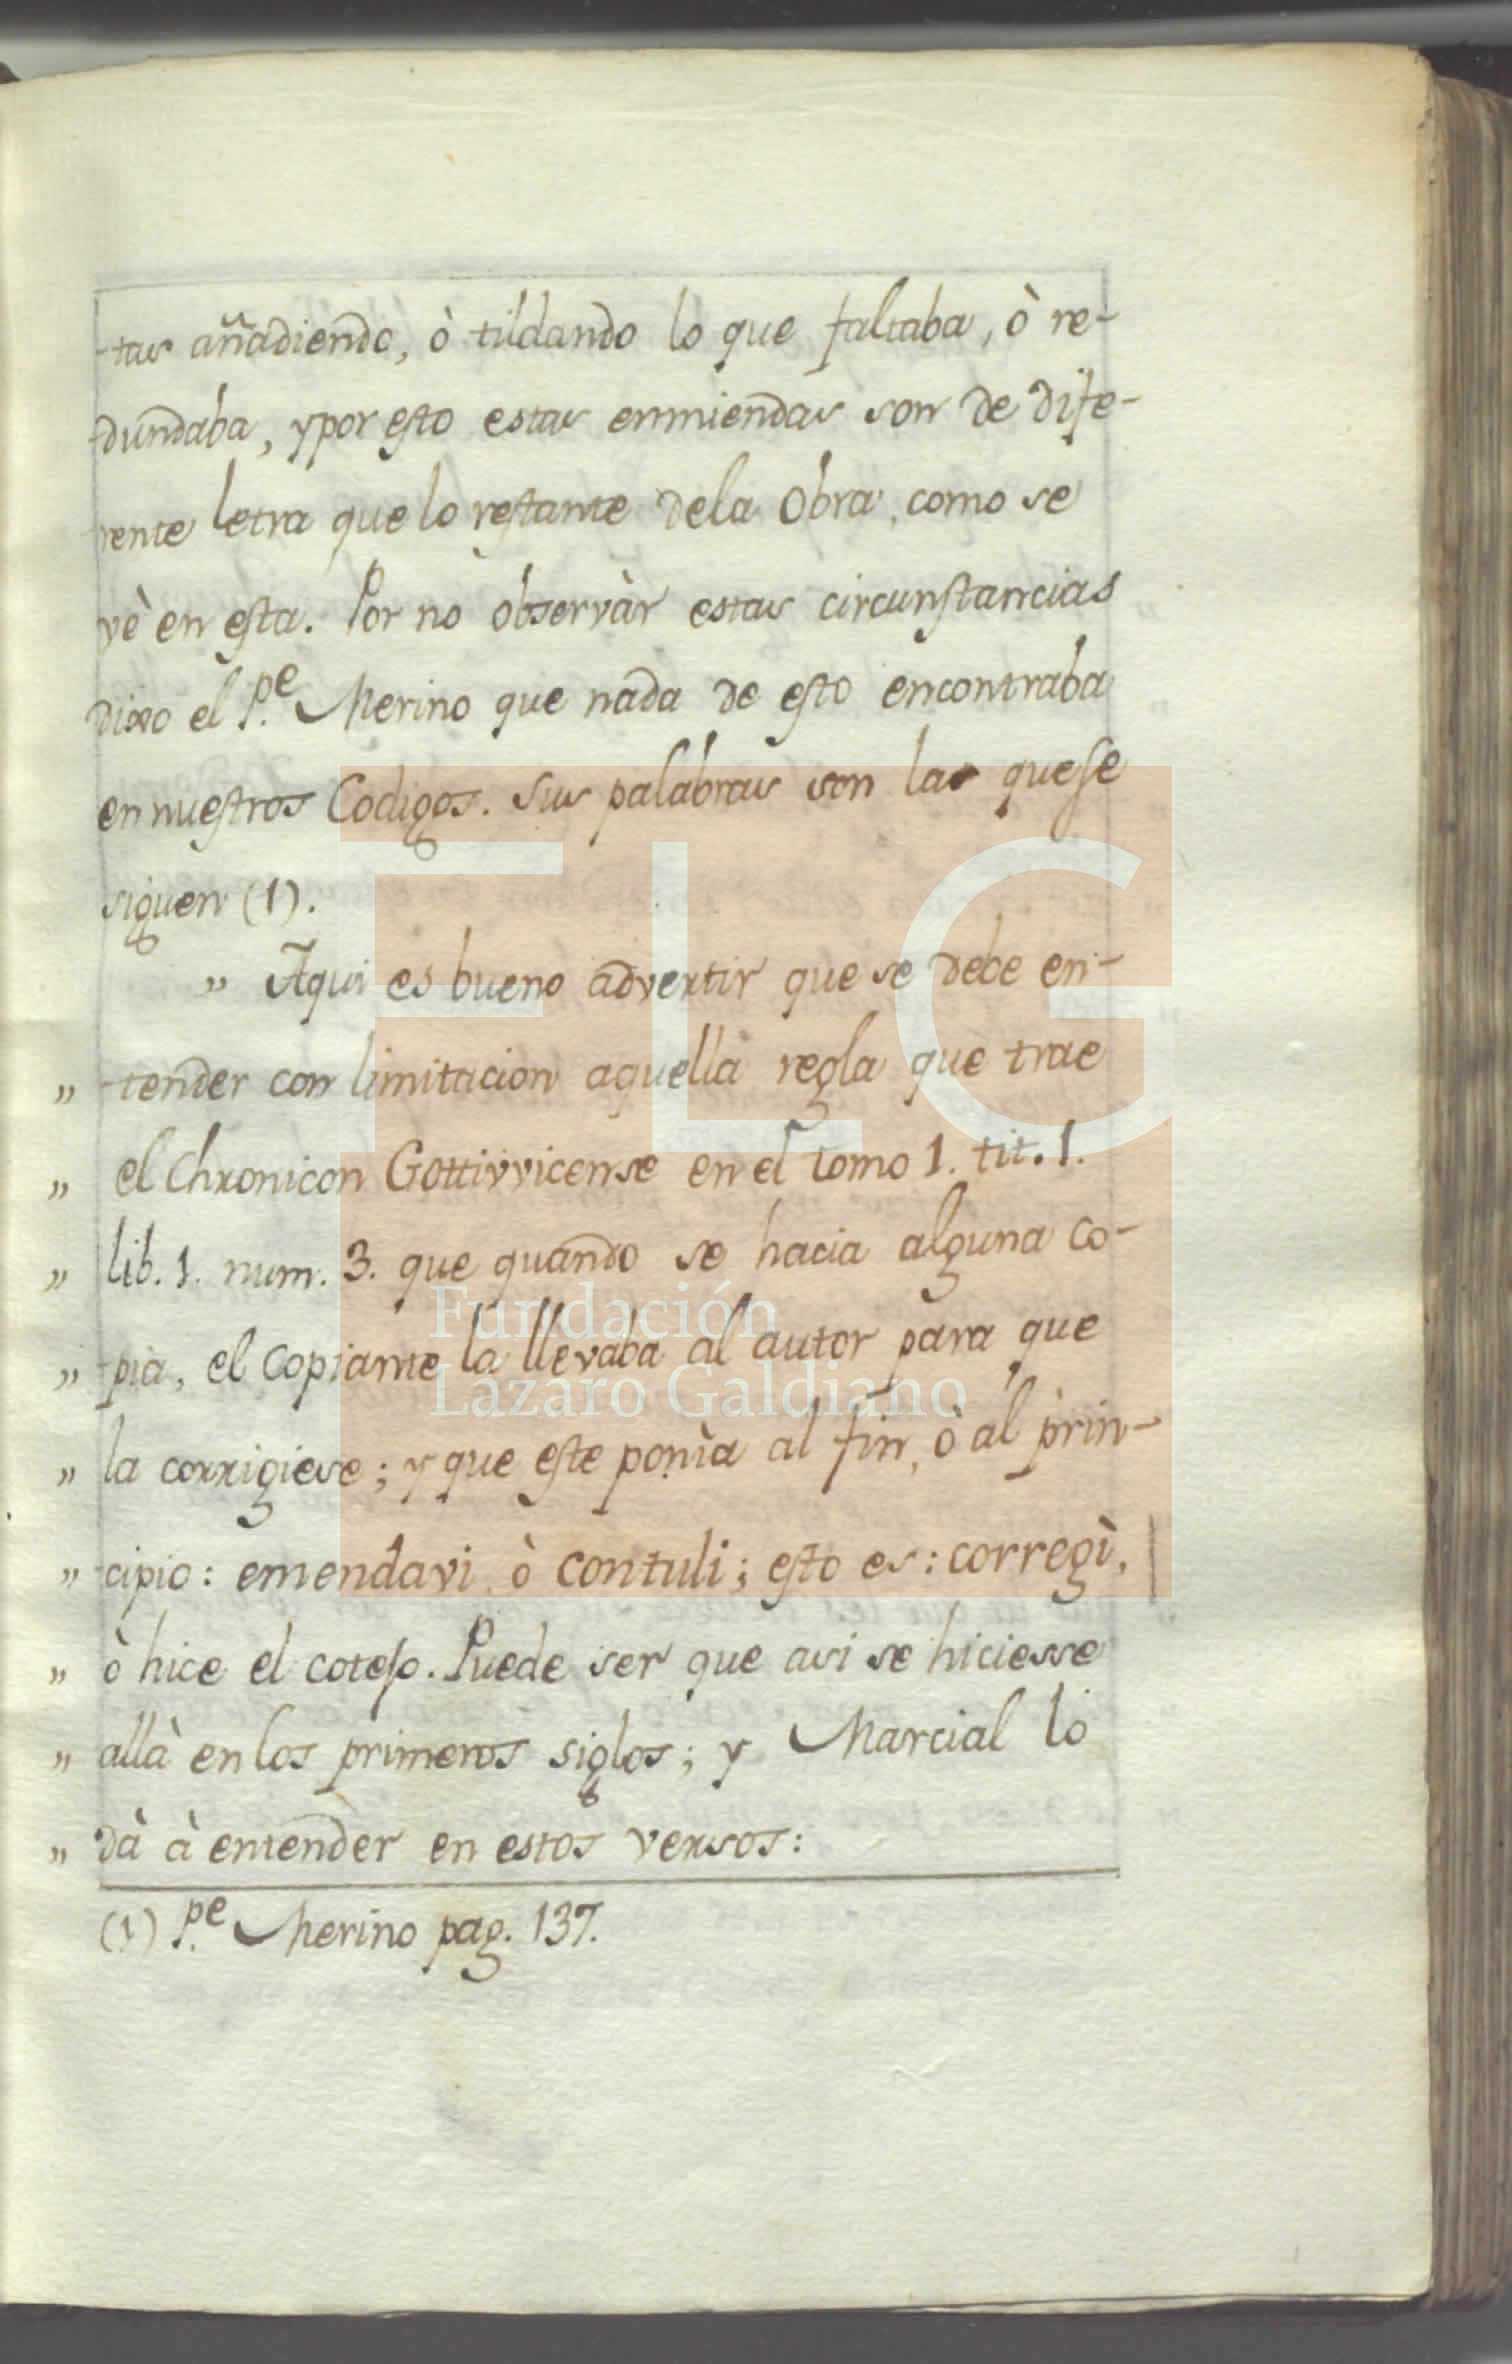 -tas añadiendo, ò tildando lo que faltaba, ò re-
dundaba, y por esto estas enmiendas son de dife-
rente letra que lo restante dela Obra, como se
vè en esta. Por no observàr estas circunstancias
dixo el P.e Merino que nada de esto encontraba
en nuestros Codigos. Sus palabras son las que se
siguen (1).
„ Aqui es bueno advertir que se debe en-
„ tender con limitacion aquella regla que trae
„ el Chronicon Gottivvicense en el tomo 1. tit. 1.
„ lib. 1. num. 3. que quando se hacia alguna co-
„ pia, el Copiante la llevaba al autor para que
„ la corrigiese; y que este ponìa al fin, ò al prin-
„ cipio: emendavi, ò contuli; esto es: corregì,
„ ò hice el cotejo. Puede ser que asi se hiciesse
„ allà en los primeros siglos; y Marcial lo
„ dà à entender en estos versos:
(1) P.e Merino pag. 137.
FLG
Fundación
Lázaro Galdiano